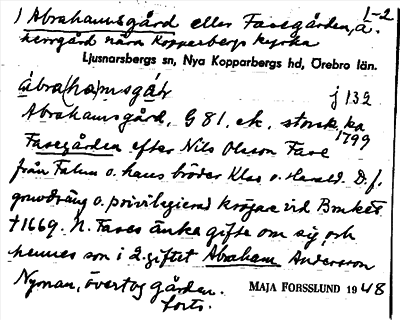 1-2
) Abrahamsgård eller Fasegården, a.
herrgård nära Kopparbergs kyrka
Ljusnarsbergs sn, Nya Kopparbergs hd, Örebro län.
ábra(ha)msgár j 132
Abrahamsgård, G 81. ek. storsk. ka
1799
Fasegården efter Nils Olsson Fase
från Falun o. hans bröder Klas o. Harald. D. f.
grundräng o. privilegierad krögare vid Bruket
†1669. N. Fases änka gifte om sig, och
hennes son i 2. giftet Abraham Andersson
Nyman, övertog gården.
forts.
MAJA FORSSLUND 1948